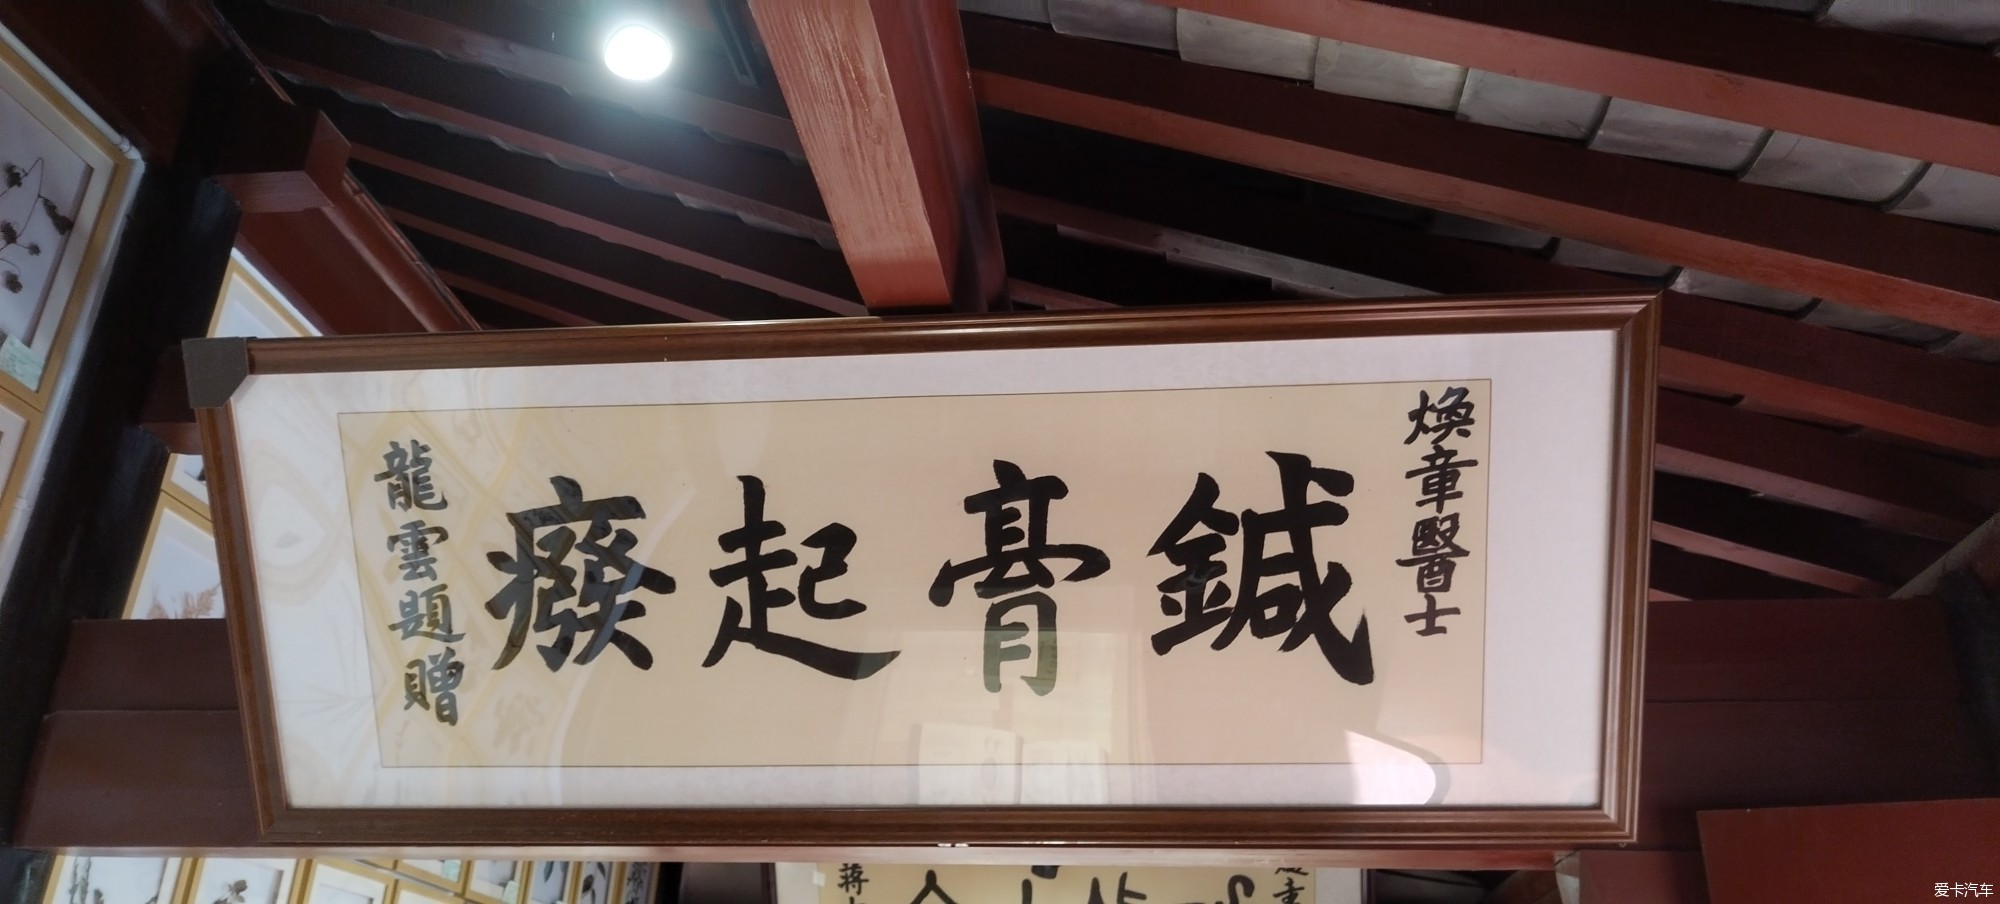 煥章醫士
鍼膏起癈
龍雲題贈
蔣
爱卡汽车